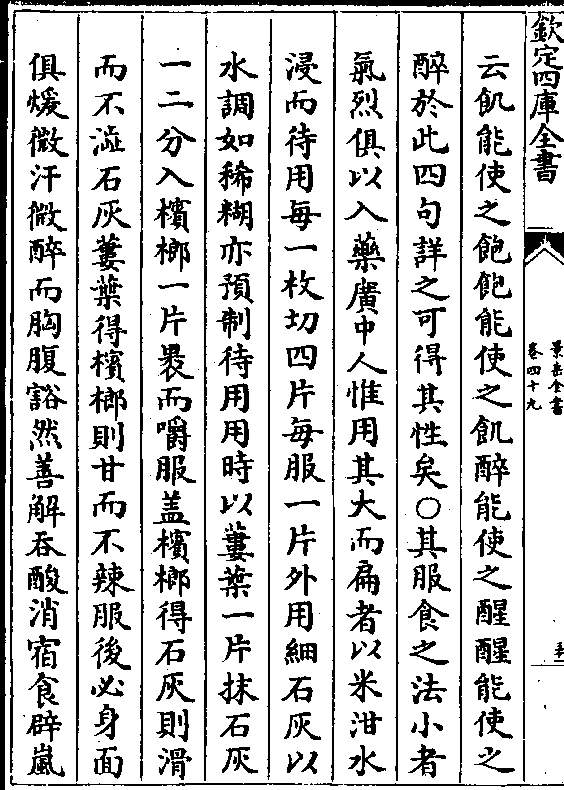 欽定四庫全書
景岳全書
卷四十九
云飢能使之飽飽能使之飢醉能使之醒醒能使之
醉於此四句詳之可得其性矣○其服食之法小者
氣烈俱以入藥廣中人惟用其大而扁者以米泔水
浸而待用每一枚切四片每服一片外用細石灰以
水調如稀糊亦預制待用用時以蔞葉一片抹石灰
一二分入檳榔一片裹而嚼服蓋檳榔得石灰則滑
而不澁石灰蔞葉得檳榔則甘而不辣服後必身面
俱煖微汗微醉而胸腹豁然善解吞酸消宿食辟嵐